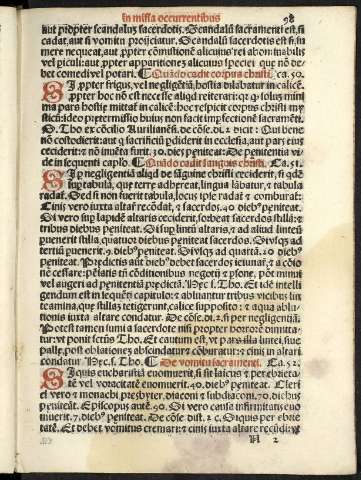 in missa occurrentibus 98
aut ꝓpter scandalus sacerdotis. Scandalū sacramenti est, si
cadat, aut si vomitu proijciatur. Scandalū sacerdotis est si in
mere nequeat, aut ꝓpter cōmistionē alicuius rei abominabilis
vel piculi: aut ꝓpter apparitionē alicuius speciei que nō de
bet comedi vel potari. Quādo cadit corpus christi ca. 50.
Si ꝓpter frigus, vel negligētiā, hostia dilabatur in calicē.
ꝓpter hoc nō est necesse aliqd reiterari: qꝛ
ma pars hostie mittat̄ in calicē: hoc respicit corpus christi my
sticū: ideo p̄termissio huius non facit impfectionē sacramēti.
D. Tho ex cōcilio Aurilianēs. de cōse. di. 2 dicit: Qui bene
non custodierit: aut q sacrificiū pdiderit in ecclesia, aut pars eius
ceciderit: ꝛ nō inuēta fuerit. 30. dies peniteat: De penitentia vi
de in sequenti caplo. Quādo cadit sanguis christi. Ca. 51.
Si p negligentiā aliqd de sāguine christi ceciderit, si qdē
sup tabulā, que terre adhereat, lingua lābatur, ꝛ tabula
radat̄. Sed si non fuerit tabula, locus ipse radat̄ ꝛ comburat̄:
Cinis vero iuxta altare recōdat̄, ꝛ sacerdos. 40 diebꝰ peniteat.
Si vero sup lapidē altaris ceciderit, sorbeat sacerdos stillā: ꝛ
tribus diebus peniteat. Si sup lintū altaris, ꝛ ad aliud linteū
puenerit stilla, quatuor diebus peniteat sacerdos. Si vsqꝫ ad
tertiū puenerit. 9. diebꝰ peniteat. Si vsqꝫ ad quartū. 20 diebꝰ
peniteat. Predictis aut̄ diebꝰ debet sacerdos ieiunare, ꝛ a cōio
nē cessare: pēsatis tn̄ cōditionibus negotij ꝛ psone, pōt minui
vel augeri ad penitentiā predictā. Hec s. Tho. Et idē intelli
gendum est in sequēti capitulo: ꝛ abluuntur tribus vicibus lin
teamina, que stillas tetigerunt, calice supposito: ꝛ aqua ablu-
tionis iuxta altare condatur. De cōse. di. 2. si per negligentiā.
Potest tamen sumi a sacerdote nisi propter horrorē dimitta-
tur: vt ponit sctūs Tho. Et cautum est, vt pars illa lintei, siue
palle, post oblationes abscindatur ꝛ cōburatur: ꝛ cinis in altari
condatur. Hec. s. Tho. De vomitu sacramenti. Ca. 52.
Si quis eucharistiā euomuerit, si sit laicus ꝛ per ebrieta-
tē vel voracitatē euomuerit. 40. diebꝰ peniteat. Cleri
ci vero ꝛ monachi presbyter, diaconi ꝛ subdiaconi. 70. diebus
peniteāt. Episcopus autē. 90. Si vero causa infirmitatis euo
muerit. 7. diebꝰ peniteat. De cōse dist. 2 c. Si quis per ebrie
tatē. Et debet vomitus cremari: ꝛ cinis iuxta altare recōdi: vt
N 2